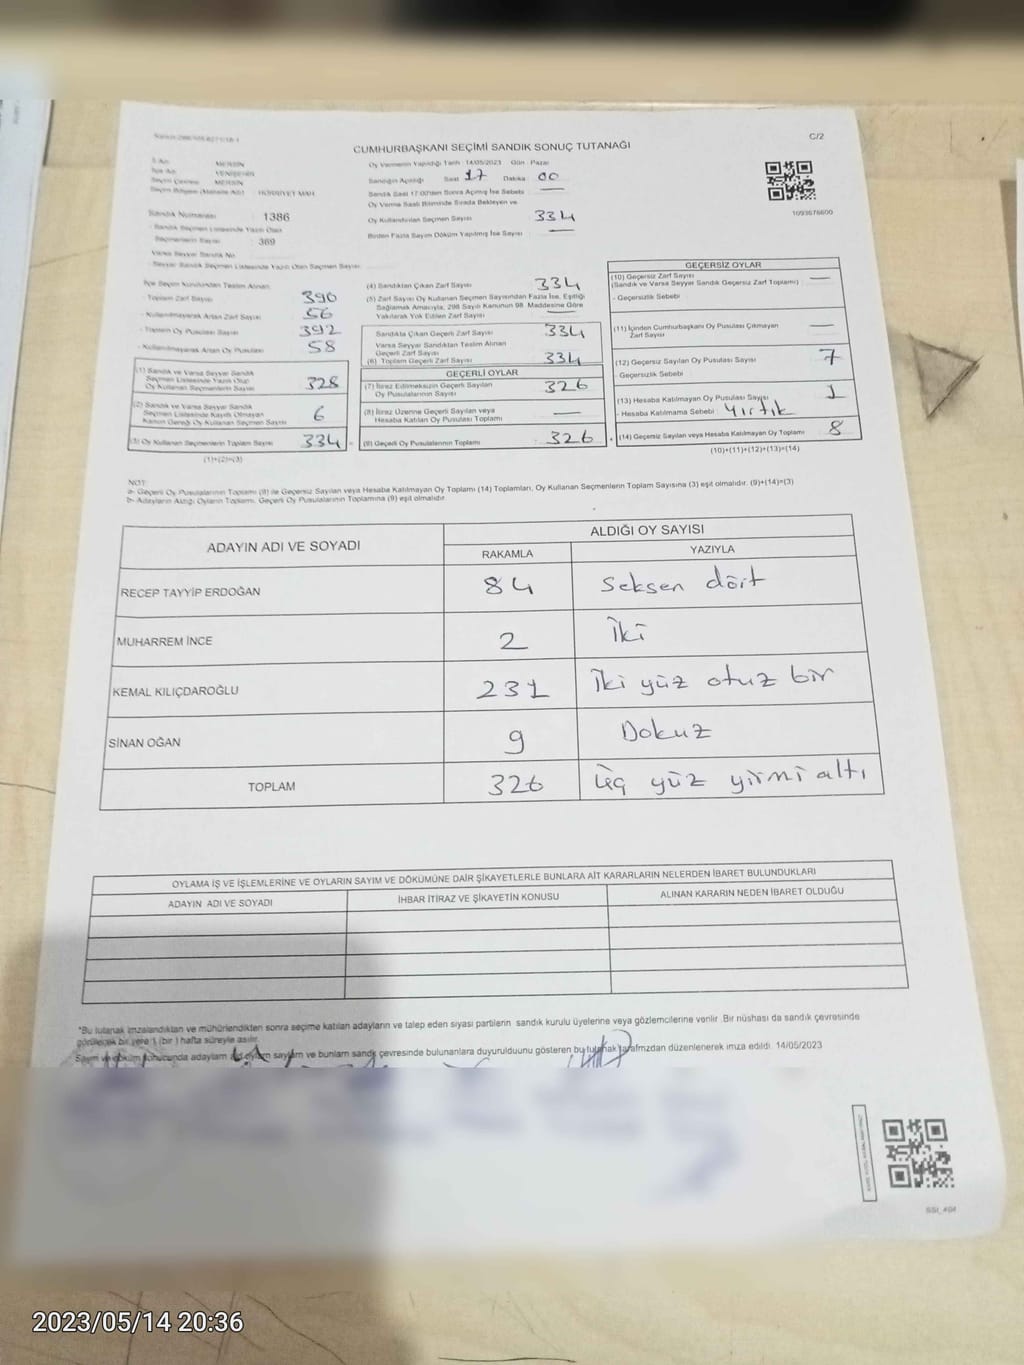 C/2
CUMHURBAŞKANI SEÇİMİ SANDIK SONUÇ TUTANAĞI
MERSİN
YENİŞEHİR
MERSİN
HÜRRİYET MAH.
Sandık Numarası 1386
- Sandık Seçmen Listesinde Yazılı Olan
Seçmenlerin Sayısı : 369
Varsa Seyyar Sandık No
- Seyyar Sandık Seçmen Listesinde Yazılı Olan Seçmen Sayısı
Oy Vermenin Yapıldığı Tarih : 14/05/2023 Gün : Pazar
Sandığın Açıldığı Saat 17 Dakika 00
Sandık Saat 17:00'den Sonra Açılmış İse Sebebi
Oy Verme Saati Bitiminde Sırada Bekleyen ve
Oy Kullandırılan Seçmen Sayısı 334
Birden Fazla Sayım Döküm Yapılmış İse Sayısı
1093676600
İlçe Seçim Kurulundan Teslim Alınan
- Toplam Zarf Sayısı 390
- Kullanılmayarak Artan Zarf Sayısı 56
- Toplam Oy Pusulası Sayısı 392
- Kullanılmayarak Artan Oy Pusulası 58
(1) Sandık ve Varsa Seyyar Sandık
Seçmen Listesinde Yazılı Olup
Oy Kullanan Seçmenlerin Sayısı 328
(2) Sandık ve Varsa Seyyar Sandık
Seçmen Listesinde Kayıtlı Olmayan
Kanun Gereği Oy Kullanan Seçmen Sayısı 6
(3) Oy Kullanan Seçmenlerin Toplam Sayısı 334 =
(1)+(2)=(3)
(4) Sandıktan Çıkan Zarf Sayısı 334
(5) Zarf Sayısı Oy Kullanan Seçmen Sayısından Fazla İse, Eşitliği
Sağlamak Amacıyla, 298 Sayılı Kanunun 98. Maddesine Göre
Yakılarak Yok Edilen Zarf Sayısı
Sandıkta Çıkan Geçerli Zarf Sayısı 334
Varsa Seyyar Sandıktan Teslim Alınan
Geçerli Zarf Sayısı
(6) Toplam Geçerli Zarf Sayısı 334
GEÇERLİ OYLAR
(7) İtiraz Edilmeksizin Geçerli Sayılan
Oy Pusulalarının Toplamı 326
(8) İtiraz Üzerine Geçerli Sayılan veya
Hesaba Katılan Oy Pusulası Toplamı
(9) Geçerli Oy Pusulalarının Toplamı : 326 +
GEÇERSİZ OYLAR
(10) Geçersiz Zarf Sayısı
(Sandık ve Varsa Seyyar Sandık Geçersiz Zarf Toplamı) :
- Geçersizlik Sebebi
(11) İçinden Cumhurbaşkanı Oy Pusulası Çıkmayan
Zarf Sayısı
(12) Geçersiz Sayılan Oy Pusulası Sayısı 7
- Geçersizlik Sebebi
(13) Hesaba Katılmayan Oy Pusulası Sayısı 1
- Hesaba Katılmama Sebebi : Yırtık
(14) Geçersiz Sayılan veya Hesaba Katılmayan Oy Toplamı 8
(10)+(11)+(12)+(13)=(14)
NOT:
a- Geçerli Oy Pusulalarının Toplamı (9) ile Geçersiz Sayılan veya Hesaba Katılmayan Oy Toplamı (14) Toplamları, Oy Kullanan Seçmenlerin Toplam Sayısına (3) eşit olmalıdır. (9)+(14)=(3)
b- Adayların Aldığı Oyların Toplamı, Geçerli Oy Pusulalarının Toplamına (9) eşit olmalıdır
ADAYIN ADI VE SOYADI ALDIĞI OY SAYISI
RAKAMLA YAZIYLA
RECEP TAYYİP ERDOĞAN 84 Seksen dört
MUHARREM İNCE 2 İki
KEMAL KILIÇDAROĞLU 231 İki yüz otuz bir
SİNAN OĞAN 9 Dokuz
TOPLAM 326 Üç yüz yirmi altı
OYLAMA İŞ VE İŞLEMLERİNE VE OYLARIN SAYIM VE DÖKÜMÜNE DAİR ŞİKAYETLERLE BUNLARA AİT KARARLARIN NELERDEN İBARET BULUNDUKLARI
ADAYIN ADI VE SOYADI İHBAR İTİRAZ VE ŞİKAYETİN KONUSU ALINAN KARARIN NEDEN İBARET OLDUĞU
*Bu tutanak imzalandıktan ve mühürlendikten sonra seçime katılan adayların ve talep eden siyasi partilerin sandık kurulu üyelerine veya gözlemcilerine verilir. Bir nüshası da sandık çevresinde
görülecek bir yere 1 (bir) hafta süreyle asılır.
Sayım ve döküm sonucunda adayların oyların sayıları ve bunların sandık çevresinde bulunanlara duyurulduğunu gösteren bu tutanak tarafımızdan düzenlenerek imza edildi. 14/05/2023
2023/05/14 20:36